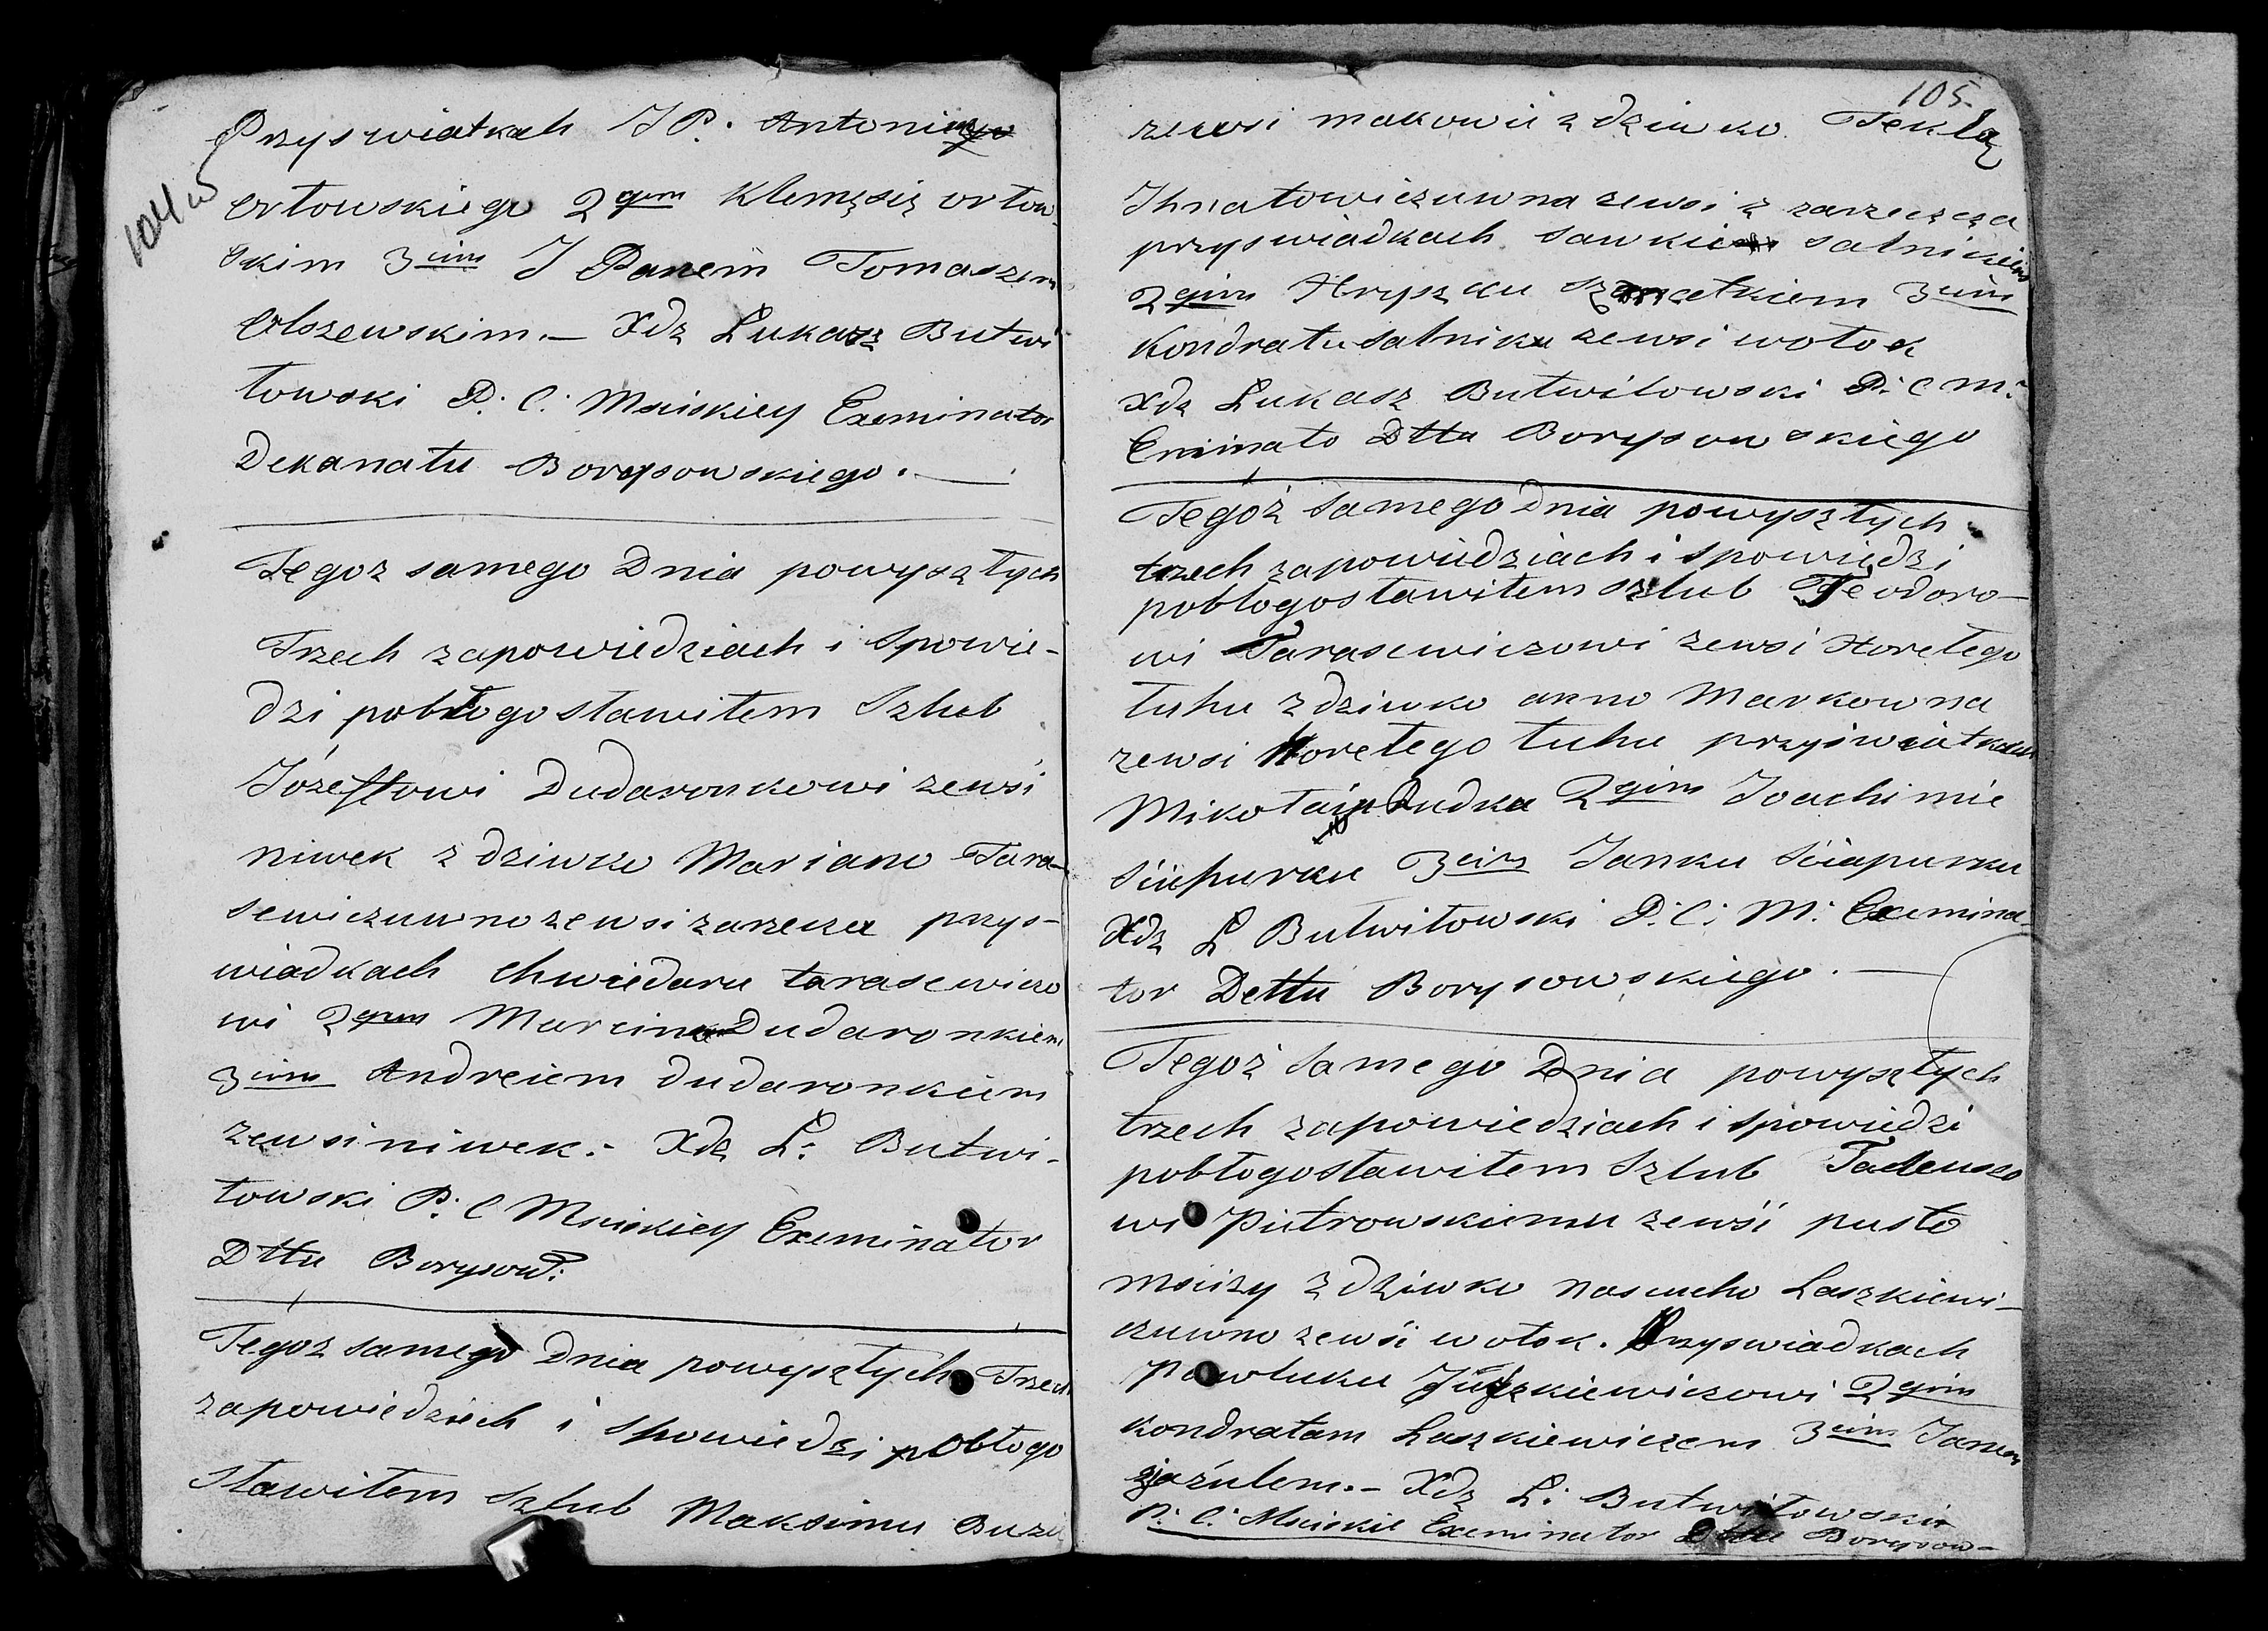 104 w
Przyswiatkach J P. Antoniego
Orłowskiego 2gim Klemęsię orłow
skim 3cim J Panem Tomaszem
Olszewskim. – Xdz Łukasz Butwi
łowski P. C. Msciskiey Exeminator
Dekanatu Borysowskiego. —
Tegoz samego Dnia powyszłych
Trzech zapowiedziach i Spowie-
dzi pobłogosławiłem Szlub
Józefłowi Dudaronkowi zewsi
niwek z dziwko Mariano Tara-
sewiczuwno zewsi zarzecza przys-
wiadkach Chwiedaru tarasewiczo
wi 2gim Marcina Dudaronkiem
3cim Andreiem dudaronkiem
zewsi niwek. – Xdz Ł: Butwi-
łowski P. C Msciskiey Exeminator
Dttu Borysow:
Tegoz samego Dnia powyszłych Trzech
zapowiedziach i Spowiedzi pobłogo
sławiłem Szlub Maksimu Buzu
105.
zewsi makowii z dziwko Teklą
Ihnatowiczuwna zewsi z zarzecza
przyswiadkach Sawkiem Salnikiem
2gim Hryszku 3cim
Kondratu Salniku zewsi wołok
Xdz Łukasz Butwiłowski P. C M.
Eminato Dttu Borysowskiego
Tegoż Samego Dnia powyszłych
trzech zapowiedziach i spowiedzi
pobłogosławiłem szlub Teodoro-
wi Tarasewiczowi zewsi Horełego
łuhu z dziwko anno Markowna
zewsi Horełego łuhu przyświatkach
Mikołaiu Dudka 2gim Joachimie
Sciepurku 3cim Janku Sciapurku
Xdz Ł Butwiłowski P. C. M. Exemina
tor Dettu Borysowskiego. —
Tegoż Samego Dnia powyszłych
trzech zapowiedziach i spowiedzi
pobłogosławiłem Szlub Tadeuszo
wi Piutrowskiemu zewśi pusto
mscizy z dziwko nascucho Laszkiewi-
czuwno zewśi wołok. Przyswiadkach
Pawluku Juszkiewiczowi 2gim
Kondratam Laszkiewiczem 3cim Janem
. – Xdz Ł. Butwiłowski
P. C. Msciskie Exeminator Dttu Borysow-